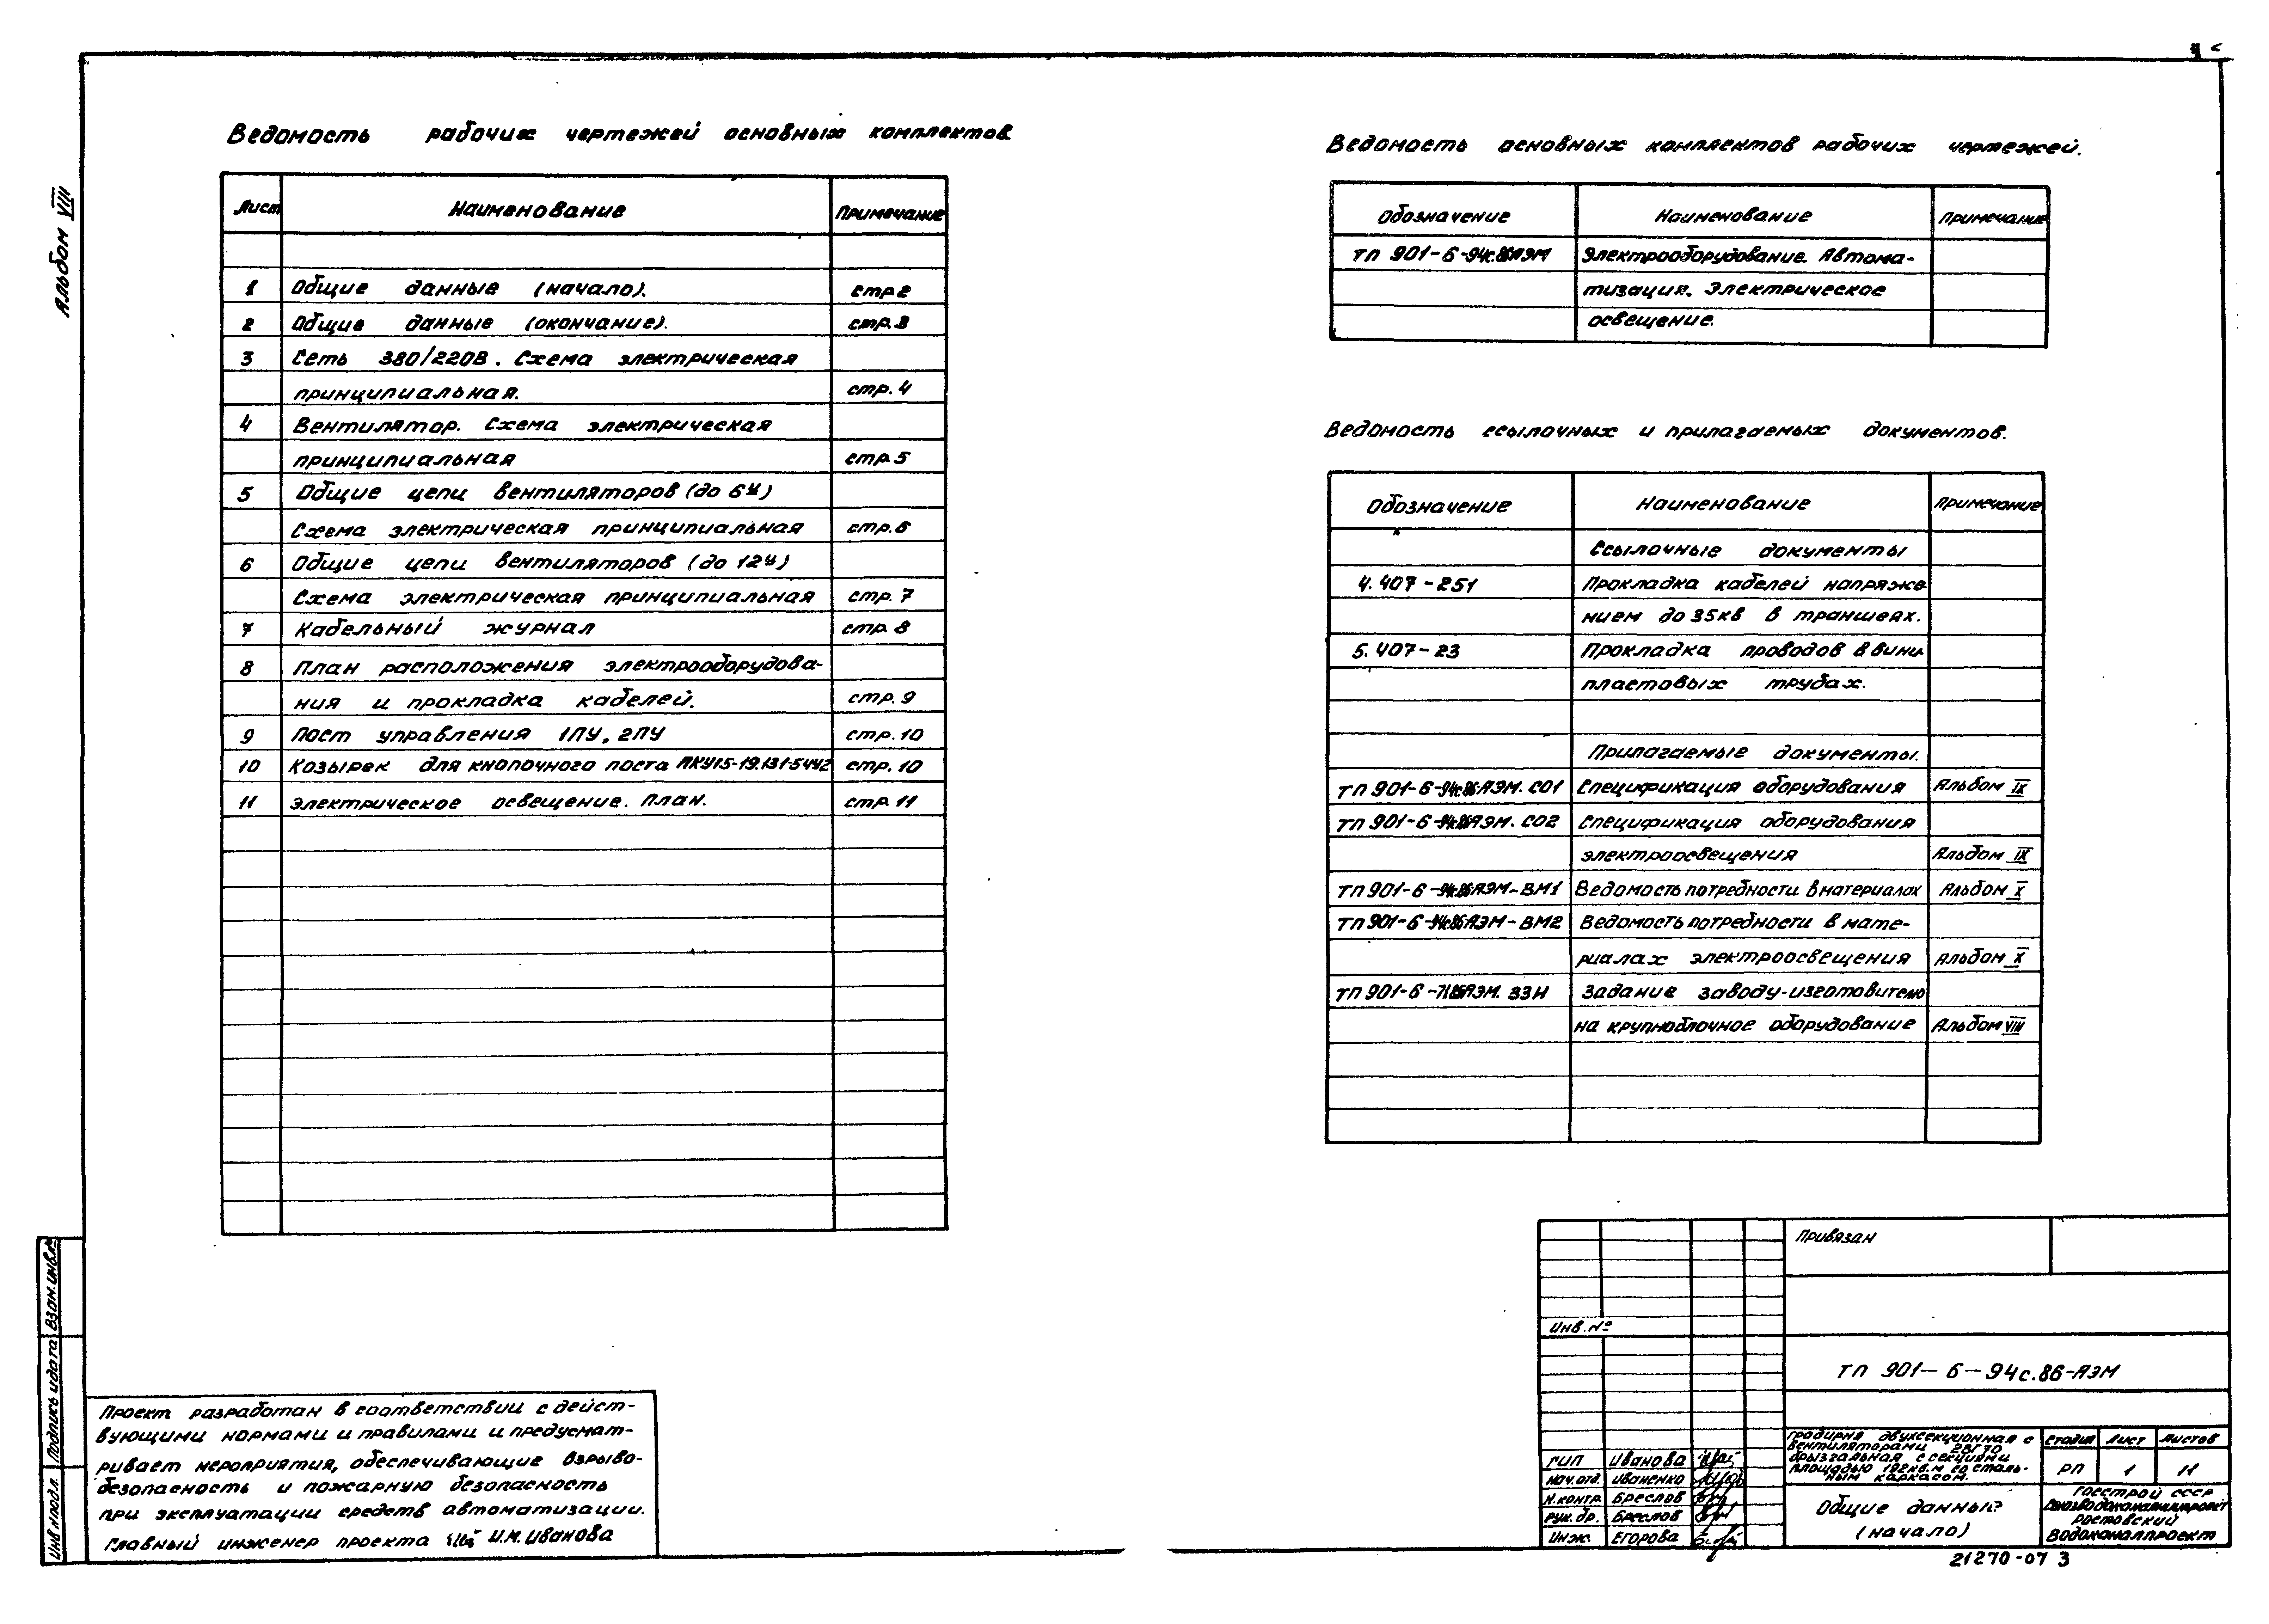 Альбом VIII
Ведомость рабочих чертежей основных комплектов
Лист Наименование Примечание
1 Общие данные (начало). стр.2
2 Общие данные (окончание). стр.3
3 Сеть 380/220В. Схема электрическая
принципиальная. стр.4
4 Вентилятор. Схема электрическая
принципиальная стр.5
5 Общие цепи вентиляторов (до 6и)
Схема электрическая принципиальная стр.6
6 Общие цепи вентиляторов (до 12и)
Схема электрическая принципиальная стр.7
7 Кабельный журнал стр.8
8 План расположения электрооборудова-
ния и прокладка кабелей. стр.9
9 Пост управления 1ПУ, 2ПУ стр.10
10 Козырек для кнопочного поста ПКУ15-19.131-54У2 стр.10
11 Электрическое освещение. План. стр.11
Ведомость основных комплектов рабочих чертежей.
Обозначение Наименование Примечание
ТП 901-6-94с.86-АЭМ Электрооборудование. Автома-
тизация. Электрическое
освещение.
Ведомость ссылочных и прилагаемых документов.
Обозначение Наименование Примечание
Ссылочные документы
4.407-251 Прокладка кабелей напряже
нием до 35кв в траншеях.
5.407-23 Прокладка проводов в вини
пластовых трубах.
Прилагаемые документы.
ТП 901-6-94с.86-АЭМ.СО1 Спецификация оборудования Альбом IX
ТП 901-6-94с.86-АЭМ.СО2 Спецификация оборудования
электроосвещения Альбом IX
ТП 901-6-94с.86-АЭМ-ВМ1 Ведомость потребности в материалах Альбом X
ТП 901-6-94с.86-АЭМ-ВМ2 Ведомость потребности в мате-
риалах электроосвещения Альбом X
ТП 901-6- АЭМ.ЗЗИ Задание заводу-изготовителю
на крупноблочное оборудование Альбом VIII
Проект разработан в соответствии с дейст-
вующими нормами и правилами и предусмат-
ривает мероприятия, обеспечивающие взрыво-
безопасность и пожарную безопасность
при эксплуатации средств автоматизации.
Главный инженер проекта И.М. Иванова
Инв.№подл. Подпись и дата Взам.инв.№
Привязан
Инв.№
ТП 901-6-94с.86-АЭМ
Градирня двухсекционная с
вентиляторами 2ВГ70
брызгальная с секциями
площадью 192кв.м со сталь-
ным каркасом.
Стадия Лист Листов
РП 1 11
ГИП Иванова
Нач.отд. Иваненко
Н.контр Бреслов
Рук.бр. Бреслов
Инж. Егорова
Общие данные
(начало)
Госстрой СССР
Союзводоканалниипроект
Ростовский
Водоканалпроект
21270-07 3